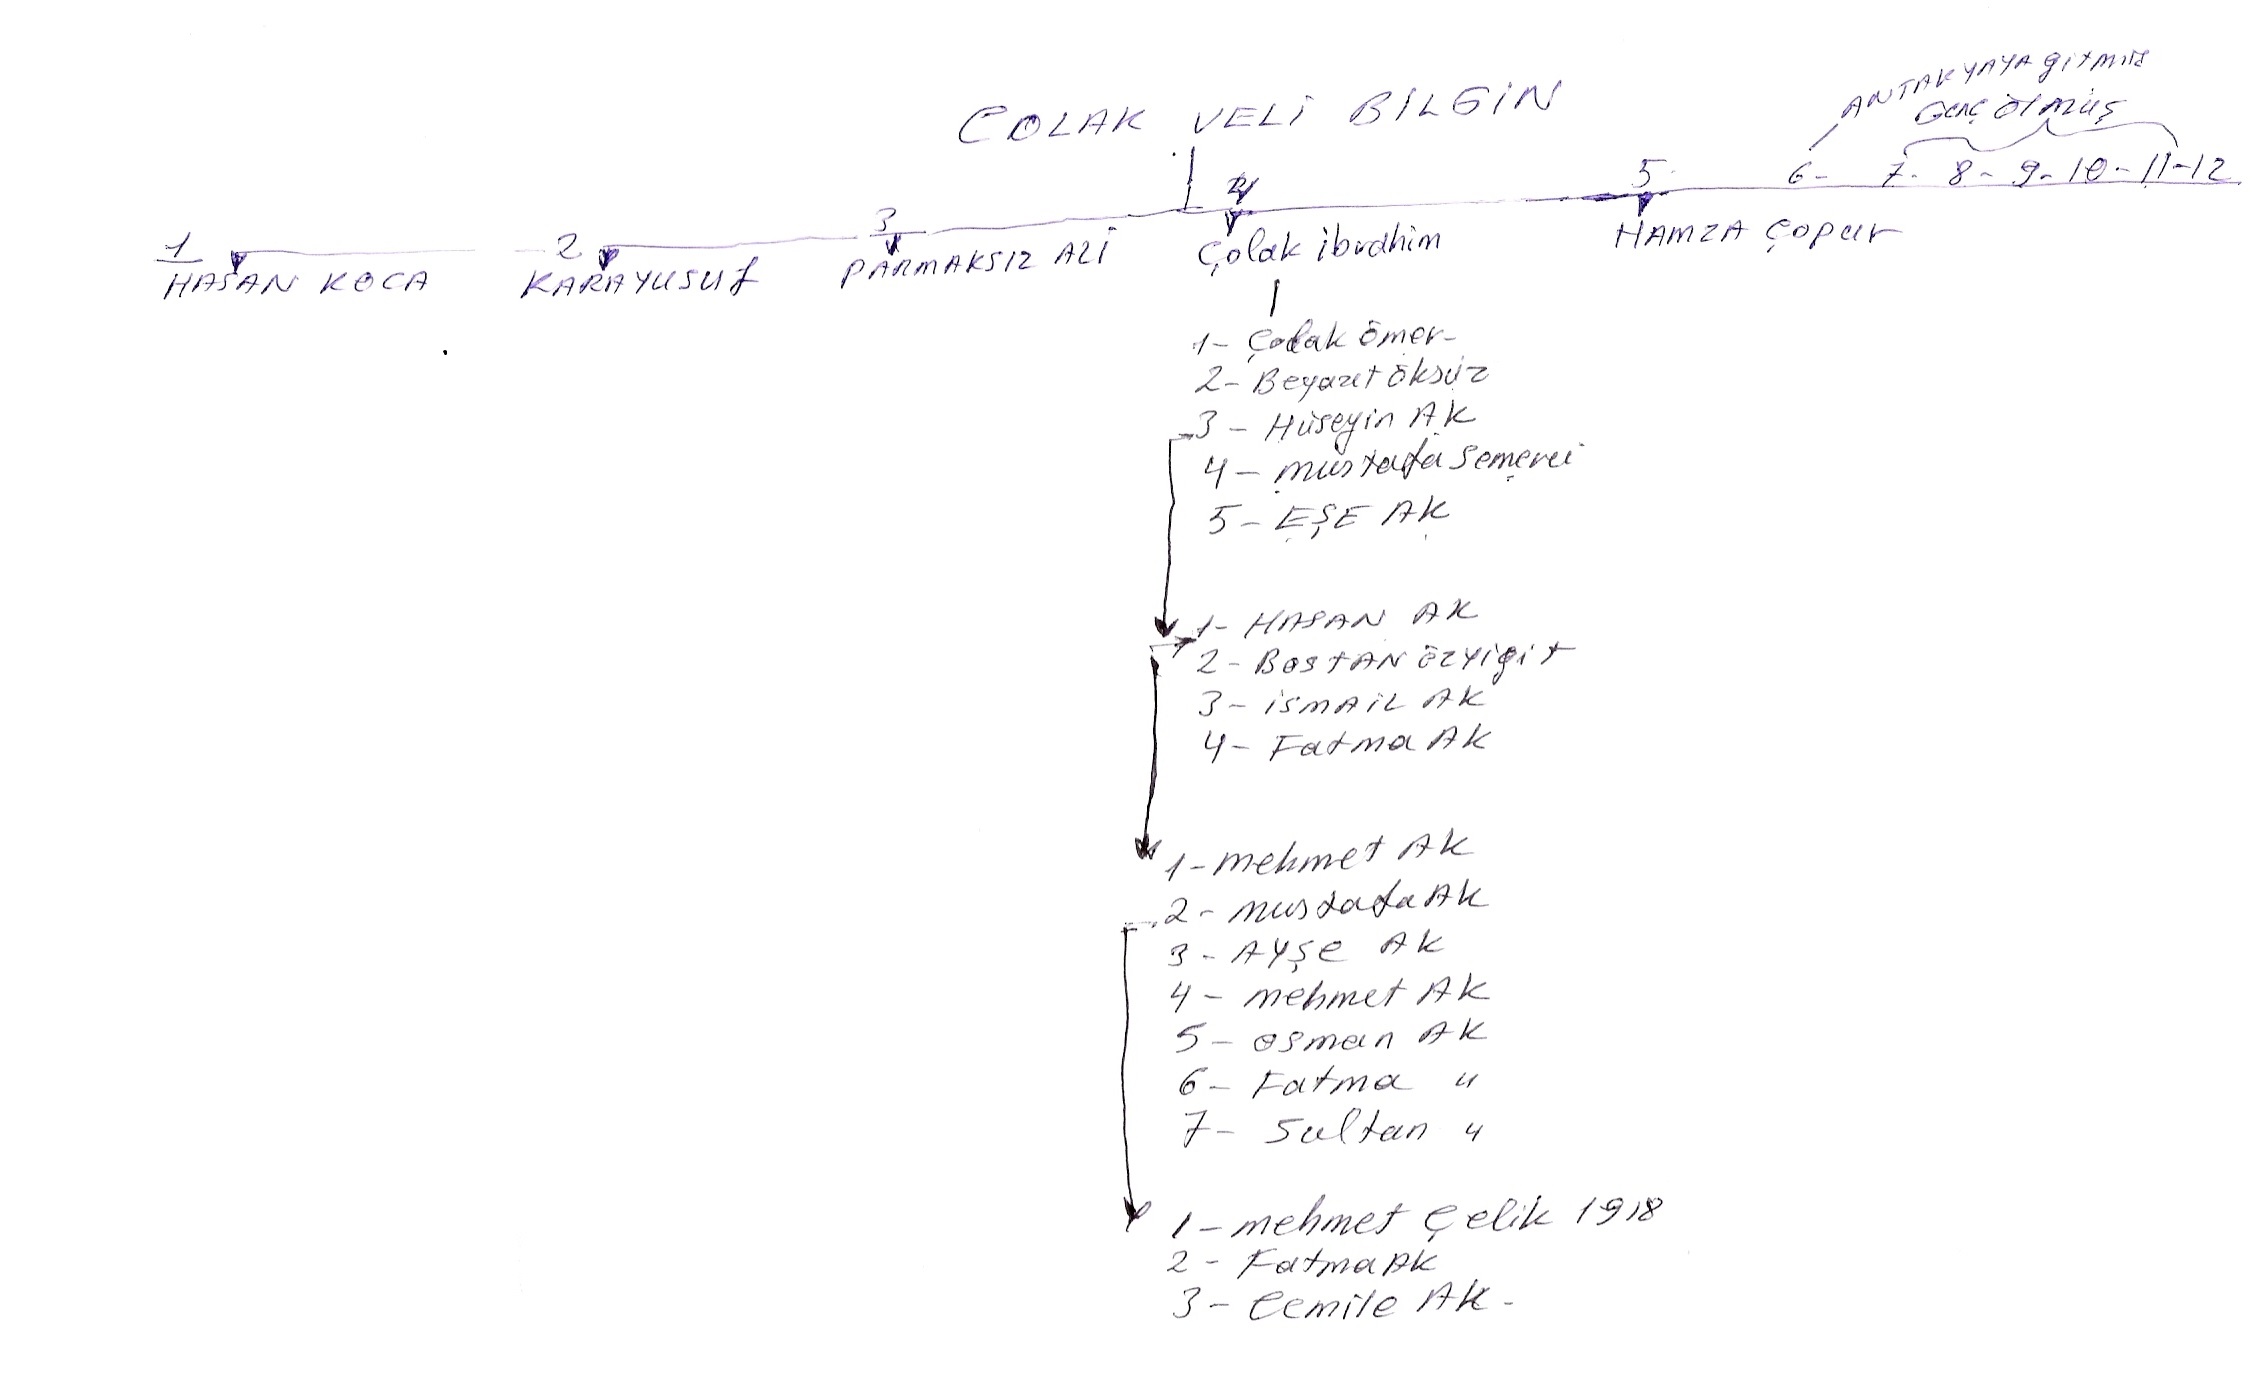 ANTAKYAYA gitmiş
Genç ölmüş
ÇOLAK VELİ BİLGİN
1 2 3 4 5 6- 7- 8- 9- 10- 11-12
HASAN KOCA KARAYUSUf PARMAKSIZ ALİ Çolak ibrahim HAMZA Çopur
1- Çolak ömer
2- Beyazıt öksüz
3- Hüseyin AK
4- mustafa Semerci
5- EŞE AK
1- HASAN AK
2- BOSTAN özYİĞİT
3- iSMAİL AK
4- Fatma AK
1- mehmet AK
2- mustafa AK
3- AYŞe AK
4- mehmet AK
5- osman AK
6- Fatma "
7- Sultan "
1- mehmet Çelik 1918
2- Fatma AK
3- Cemile AK-